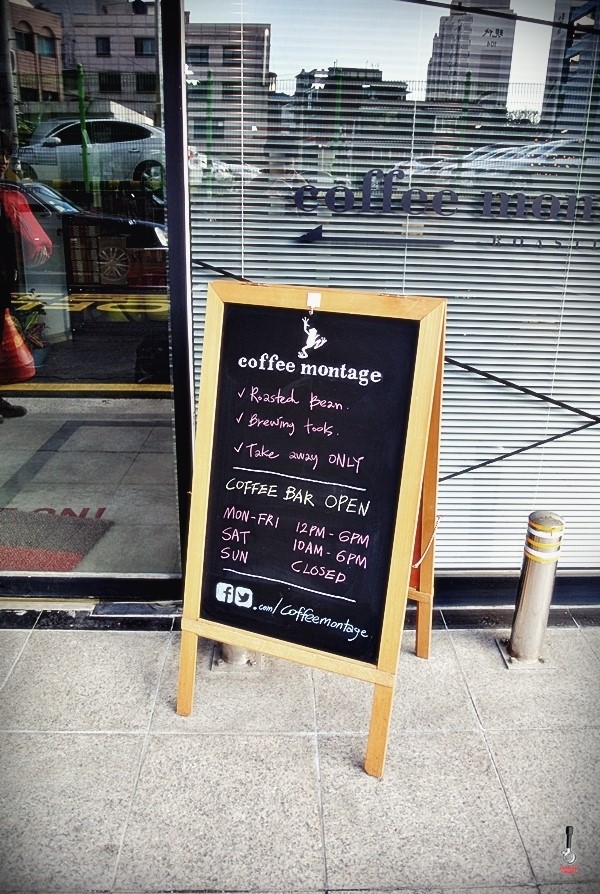 coffee mon
ROASTI
coffee montage
✓ Roasted Bean.
✓ Brewing tools.
✓ Take away ONLY
COFFEE BAR OPEN
MON-FRI 12PM - 6PM
SAT 10AM - 6PM
SUN CLOSED
.com/coffeemontage